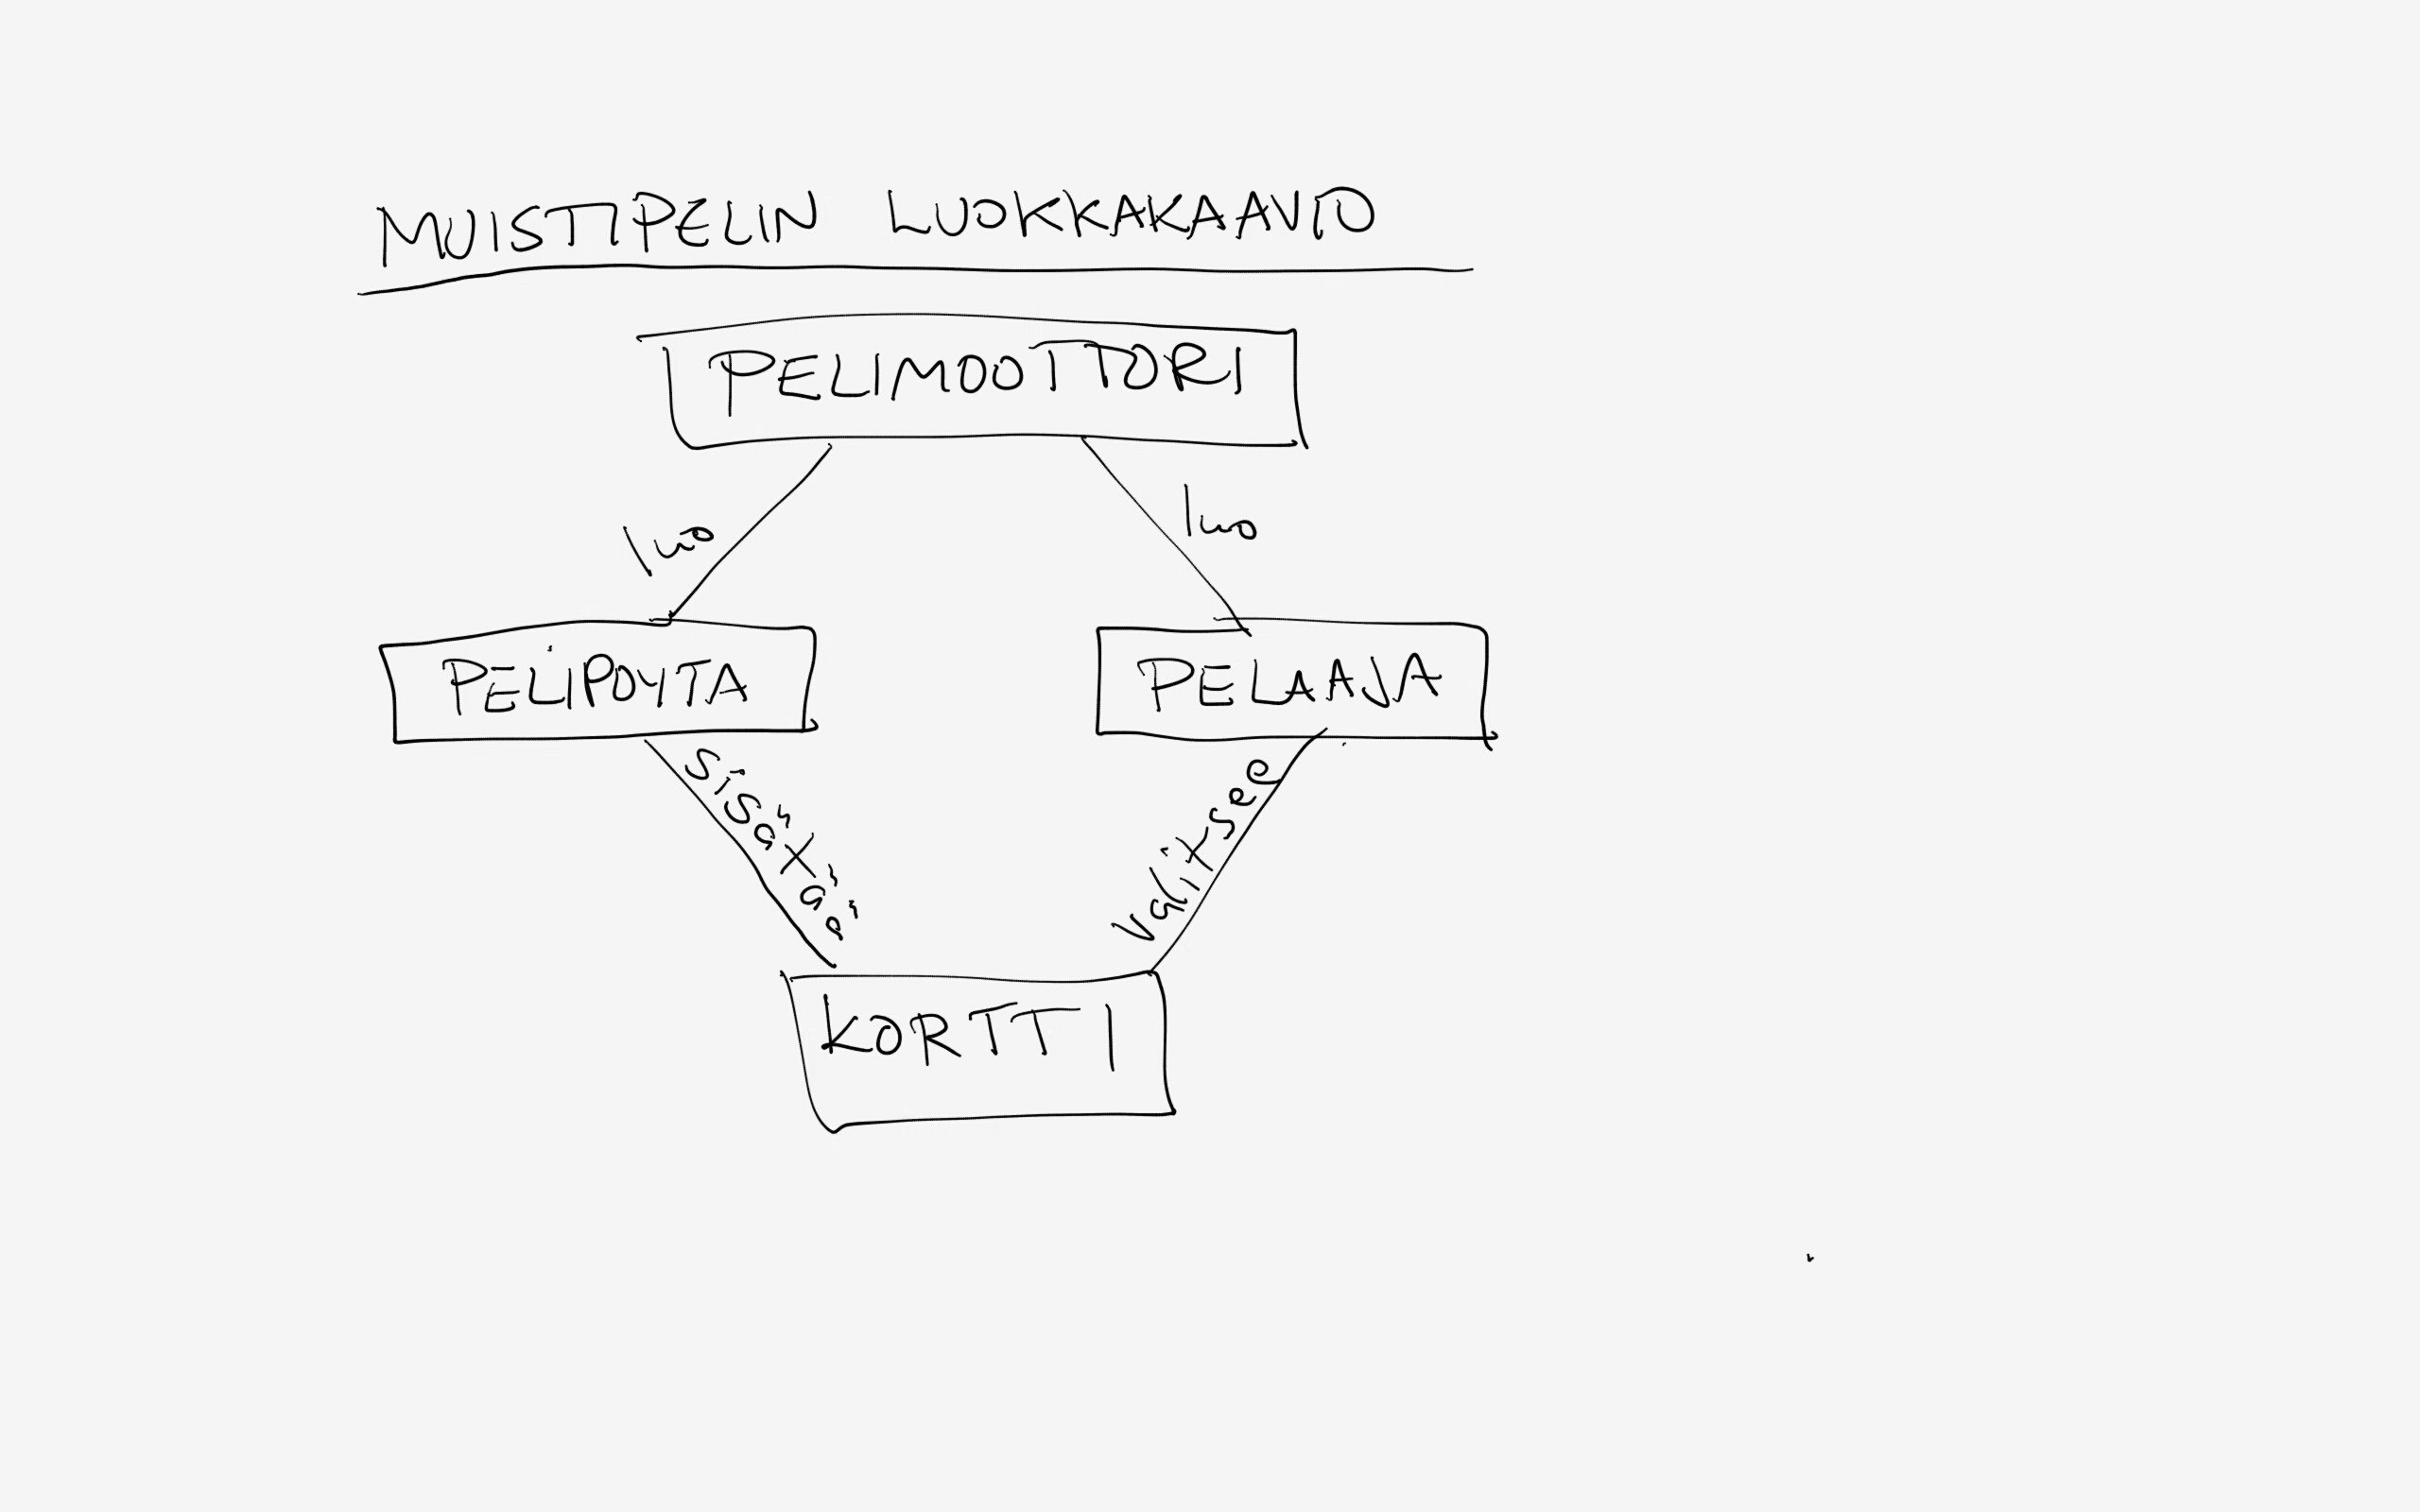 MUISTIPELIN LUOKKAKAAVIO
PELIMOOTTORI
luo
luo
PELIPÖYTÄ
PELAAJA
sisältää
valitsee
KORTTI